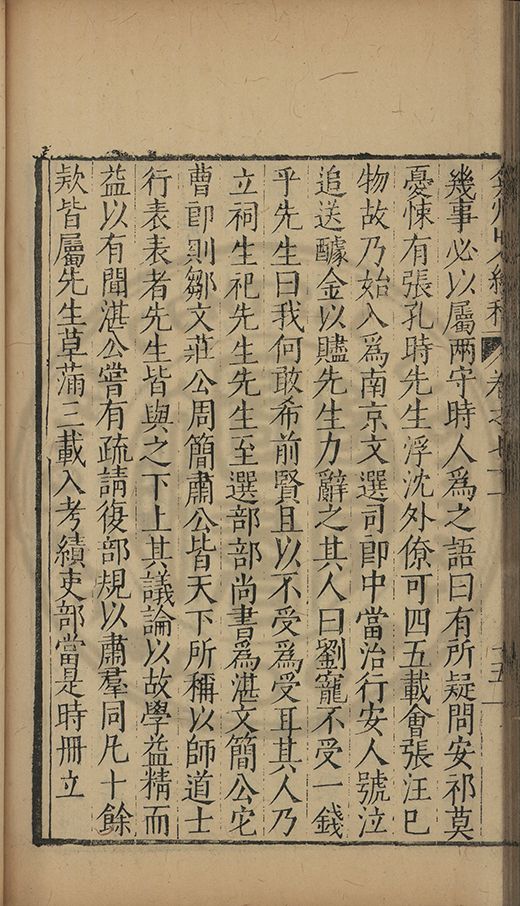 幾事必以屬兩守時人為之語曰有所疑問安祁莫
憂悚有張孔時先生浮沈外僚可四五載會張汪已
物故乃始入為南京文選司郎中當治行安人號泣
追送醵金以贐先生力辭之其人曰劉寵不受一錢
乎先生曰我何敢希前賢且以不受為受耳其人乃
立祠生祀先生先生至選部部尚書為湛文簡公它
曹郎則鄒文莊公周簡肅公皆天下所稱以師道士
行表表者先生皆與之下上其議論以故學益精而
益以有聞湛公嘗有疏請復部規以肅羣同凡十餘
款皆屬先生草蒲三載入考績吏部當是時冊立